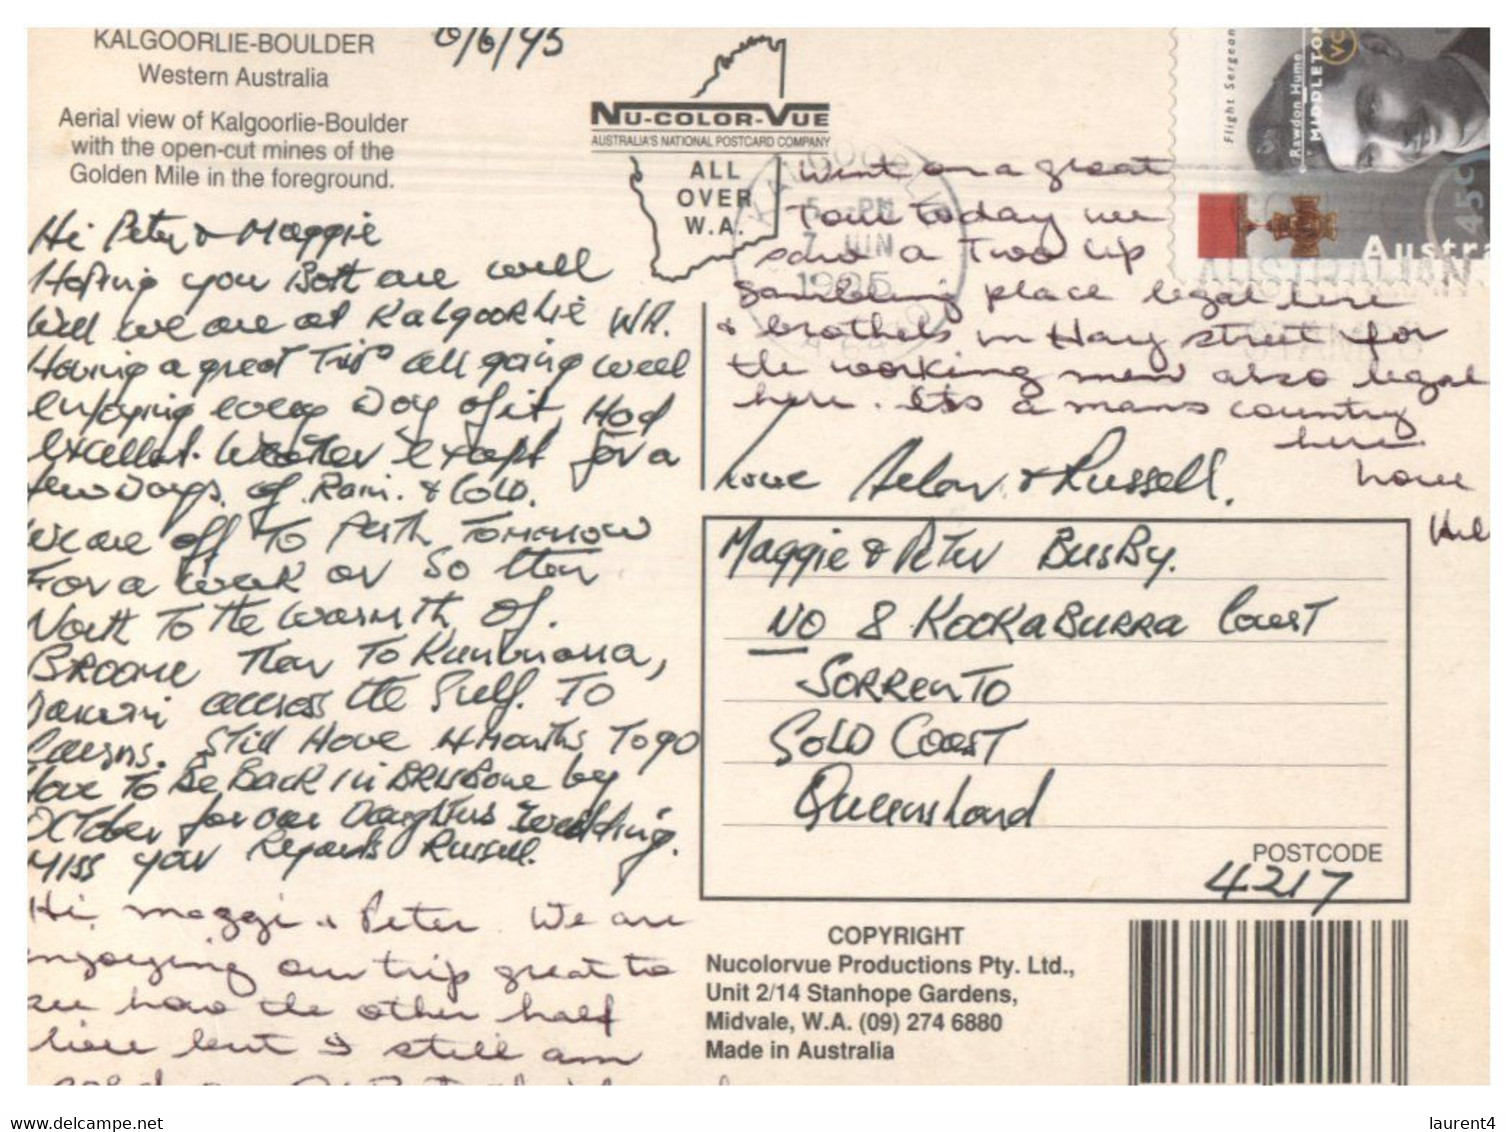 KALGOORLIE-BOULDER
Western Australia
Aerial view of Kalgoorlie-Boulder
with the open-cut mines of the
Golden Mile in the foreground.
6/6/95
NU-COLOR-VUE
AUSTRALIA'S NATIONAL POSTCARD COMPANY
ALL
OVER
W.A.
Flight Sergean
Rawdon Hume
MIDDLETON
VC
45c
Austra
5 - PM
7 JUN
1995
AUSTRALIAN
STAMPS
Hi Peter & Maggie
Hoping you Both are well
Well we are at Kalgoorlie WA.
Having a great Trip all going well
enjoying every Day of it Had
excellent Weather except for a
few Days of Rain. & Cold.
We are off To Perth Tomorrow
For a week or So then
North To the warmth of.
BROOME Then To Kununurra,
Darwin across the Gulf. To
Cairns. Still Have 4 Months To go
Have To Be Back in BRISBane by
October for our Daughters Wedding.
Miss you Regards Russell.
Hi maggi & Peter We are
enjoying our trip great to
see how the other half
live but I still am
Went on a great
Tour today we
saw a Two up
gambling place legal here
& brothels in Hay street for
the working men also legal
here. Its a mans country
here.
love
Hel
Love Helen & Russell.
Maggie & Peter BusBy.
NO 8 KOOKaBURRA Court
SORRENTO
GOLD COAST
Queensland
POSTCODE
4217
COPYRIGHT
Nucolorvue Productions Pty. Ltd.,
Unit 2/14 Stanhope Gardens,
Midvale, W.A. (09) 274 6880
Made in Australia
www.delcampe.net
laurent4